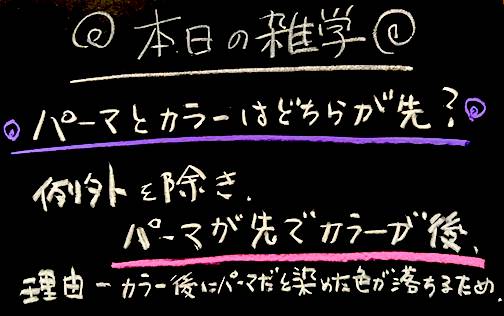 本日の雑学
パーマとカラーはどちらが先?
例外を除き、
パーマが先でカラーが後、
理由ーカラー後にパーマだと染めた色が落ちるため、